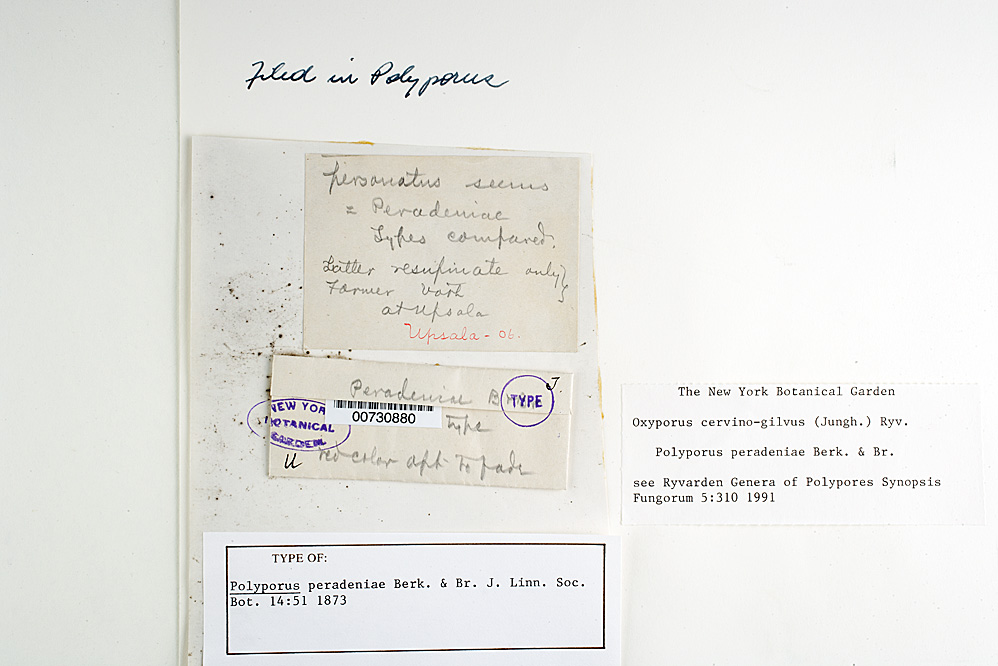 Filed in Polyporus
personatus seems
= Peradeniae
Types compared.
Latter resupinate only }
Former both
at Upsala
Upsala - 06.
J.
Peradeniae B
TYPE
NEW YOR
BOTANICAL
GARDEN
00730880
type
U red color apt to fade
The New York Botanical Garden
Oxyporus cervino-gilvus (Jungh.) Ryv.
Polyporus peradeniae Berk. & Br.
see Ryvarden Genera of Polypores Synopsis
Fungorum 5:310 1991
TYPE OF:
Polyporus peradeniae Berk. & Br. J. Linn. Soc.
Bot. 14:51 1873